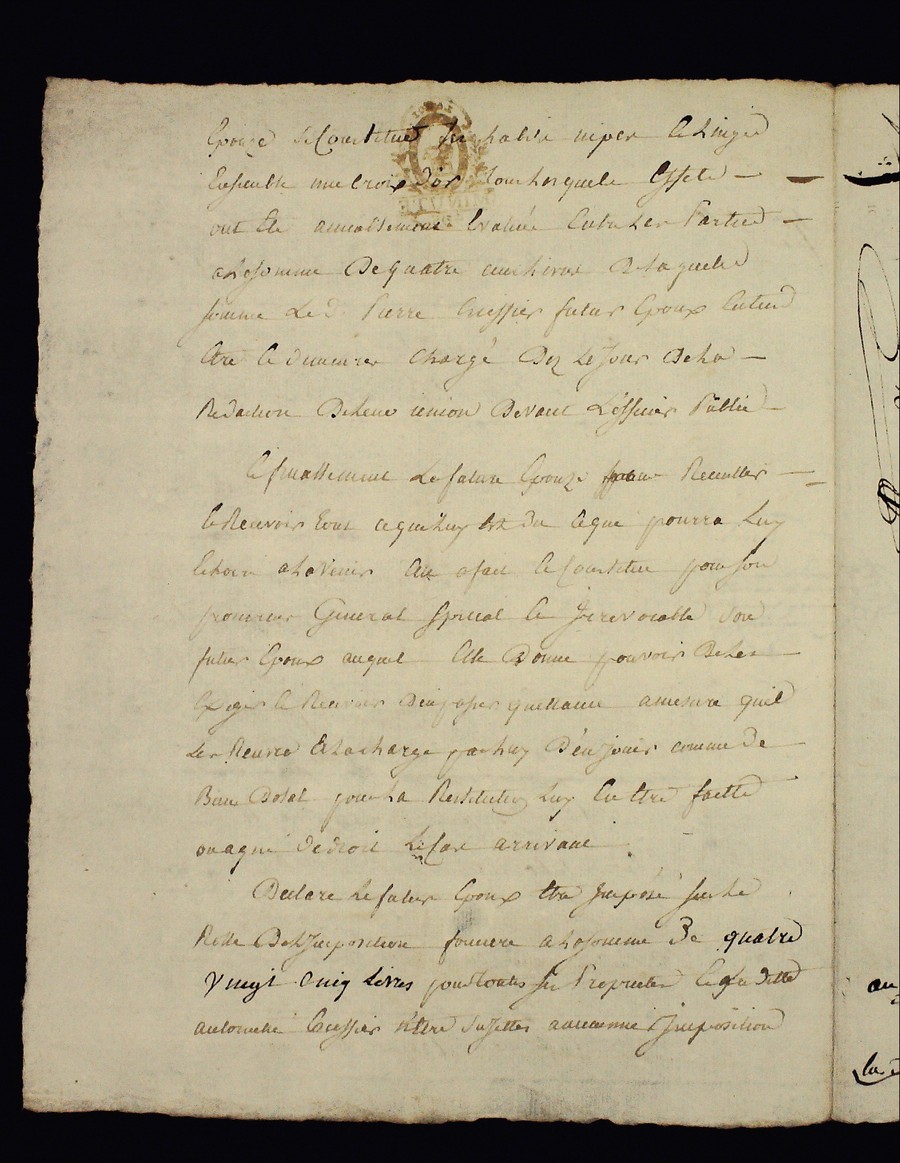 Epouze se Constitue ses habits nipes et linges
Ensemble une croix d'or tous lesquels Effets
ont été annuellement Evalués Entre les Parties
a la somme De quatre cens livres De laquelle
somme Le d. Pierre Cressier futur Epoux Entend
être et demeurer chargé Dez Le Jour De la
Redaction De leur union Devant L'officier Public
Et finallement La future Epouze pour Recueillir
et Recevoir tout ce qui luy est du et que pourra luy
Echoir a l'avenir Elle a fait et constitue pour son
procureur General special et Irrevocable son
futur Epoux auquel Elle Donne pouvoir De les
Exiger et Recevoir D'en passer quittance a mesure qu'il
Les Recevra Et la charge par luy D'en jouir comme de
Biens Dotal pour La Restitution Luy En être faitte
ou a qui de droit Le Cas arrivant
Declare Le futur Epoux être Imposé sur Le
Rolle De L'Imposition fonciere a la somme De quatre
vingt cinq livres pour toutes ses Proprietes Et la ditte
antoinette Cressier N'être sujette a aucunne Imposition